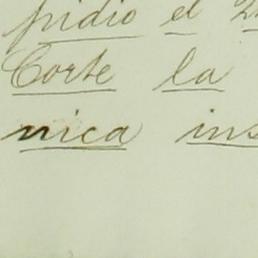 pidio el 2
Corte la
nica ins